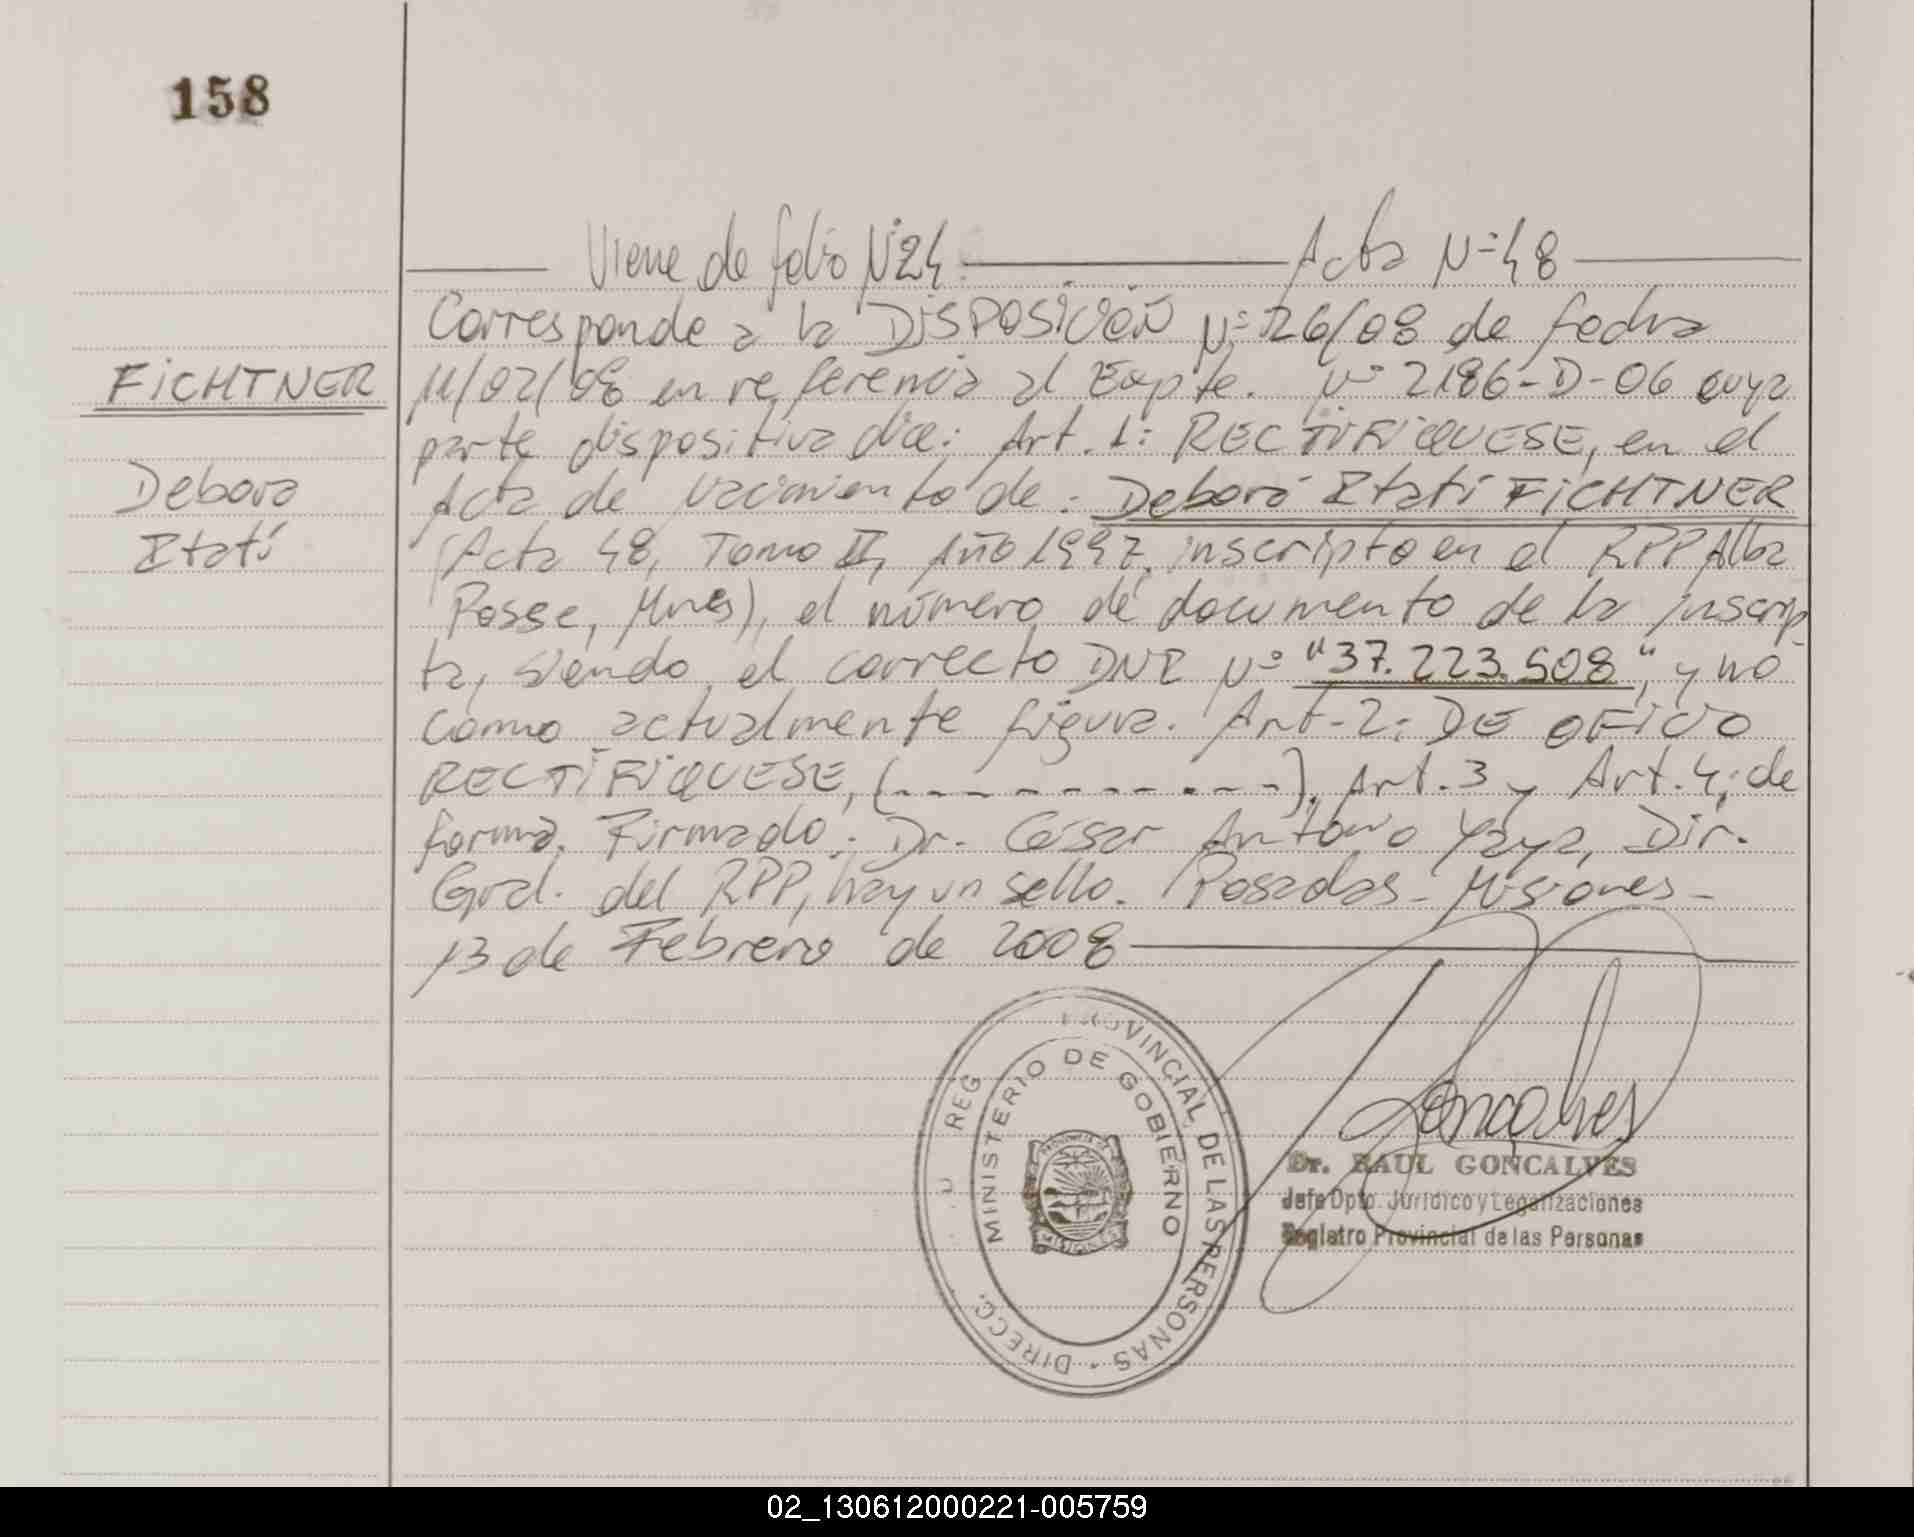 158
Viene de folio Nº24 Acta Nº=48
Corresponde a la DISPOSICIÓN Nº 126/08 de fecha
FICHTNER
11/02/08 en referencia al Expte. Nº 2186-D-06 cuya
parte dispositiva dice: Art. 1: RECTIFIQUESE, en el
Debora
Acta de Nacimiento de: Debora Itatí FICHTNER
Itatí
(Acta 48, Tomo II, Año 1997, inscripto en el RPP Alba
Posse, Mnes), el número de documento de la inscrip
ta, siendo el correcto DNI Nº "37.223.508", y no
como actualmente figura. Art-2: DE OFICIO
RECTIFIQUESE, (- - - - - - - - - - -), Art. 3 y Art. 4; de
forma. Firmado: Dr. César Antonio Yaya, Dir.
Gral. del RPP, hay un sello. Posadas - Misiones -
13 de Febrero de 2008
DIRECC. REG PROVINCIAL DE LAS PERSONAS
MINISTERIO DE GOBIERNO
MISIONES
Goncalves
Dr. RAUL GONCALVES
Jefe Dpto. Jurídico y Legalizaciones
Registro Provincial de las Personas
02_130612000221-005759